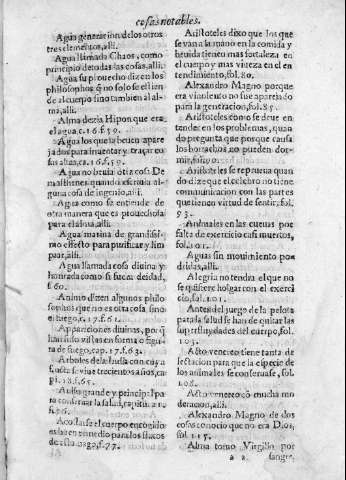 cosas notables.
Agua generacion de los otros
tres elementos, alli.
Agua llamada Chaos, como
principio de todas las cosas, alli.
Agua su prouecho dizen los
philosophos q̃ no solo se estien
de al cuerpo sino tambien al al
ma, alli.
Alma dezia Hipon que era
el agua, c. 16. f. 59.
Agua los que la beuen apare
jados para inuentar y traçar co
sas altas, ca. 16. f. 59.
Agua no bruia otra cosa De
mosthenes quando
cosa de ingenio, alli.
Agua como se entiende de
otra manera que es prouechosa
para el alma, alli.
Agua marina de grandissi
mo effecto para purificar y lim
piar, alli.
Agua llamada cosa diuina y
honrada como si fuera deidad,
f. 60.
Animo dizen algunos philo
sophos que no es otra cosa sino
el fuego, c. 17. f. 61.
Appariciones diuinas, por q̃
han sido vistas en forma o figu
ra de fuego, cap. 17. f. 63.
Arboles de la India con cuya
fruta se viue trecientos años, ca
pi. 18. f. 65.
grande y principal pa
ra conseruar la salud,
f. 76.
Acostarse el cuerpo encogido
es buen remedio para los flacos
de estomago, f. 77.
Aristoteles dixo que los que
se van a la mano en la comida y
beuida tienen mas fortaleza en
el cuerpo y mas viueza en el en
tendimiento, fol. 80.
Alexandro Magno porque
era vinolento no fue aparejado
para la generacion, fol. 85.
Aristoteles como se deue en
tender en los problemas, quan
do pregunta que porque causa
los borrachos no pueden dor-
mir, fol. 90.
Aristoteles se reprueua quan
do dize que el celebro no tiene
communicacion con las partes
que tienen virtud de sentir, fol.
93.
Animales en las cueuas por
falta de exercicio casi muertos,
fol. 101.
Aguas sin mouimiento po-
dridas, alli.
Alegria no tendra el que no
se quisiere holgar con el exerci
cio, fol. 101.
Antes del juego de la pelota
para la salud se han de quitar las
superfluydades del cuerpo, fol.
103.
Acto venereo tiene tanta de
lectacion para que la especie de
los animales se conseruase, fol.
106.
Acto venereo cō mucha mo
deracion, alli.
Alexandro Magno de dos
cosas conocio que no era Dios,
fol. 115.
Alma tomo Virgilio por
a 2 sangre.